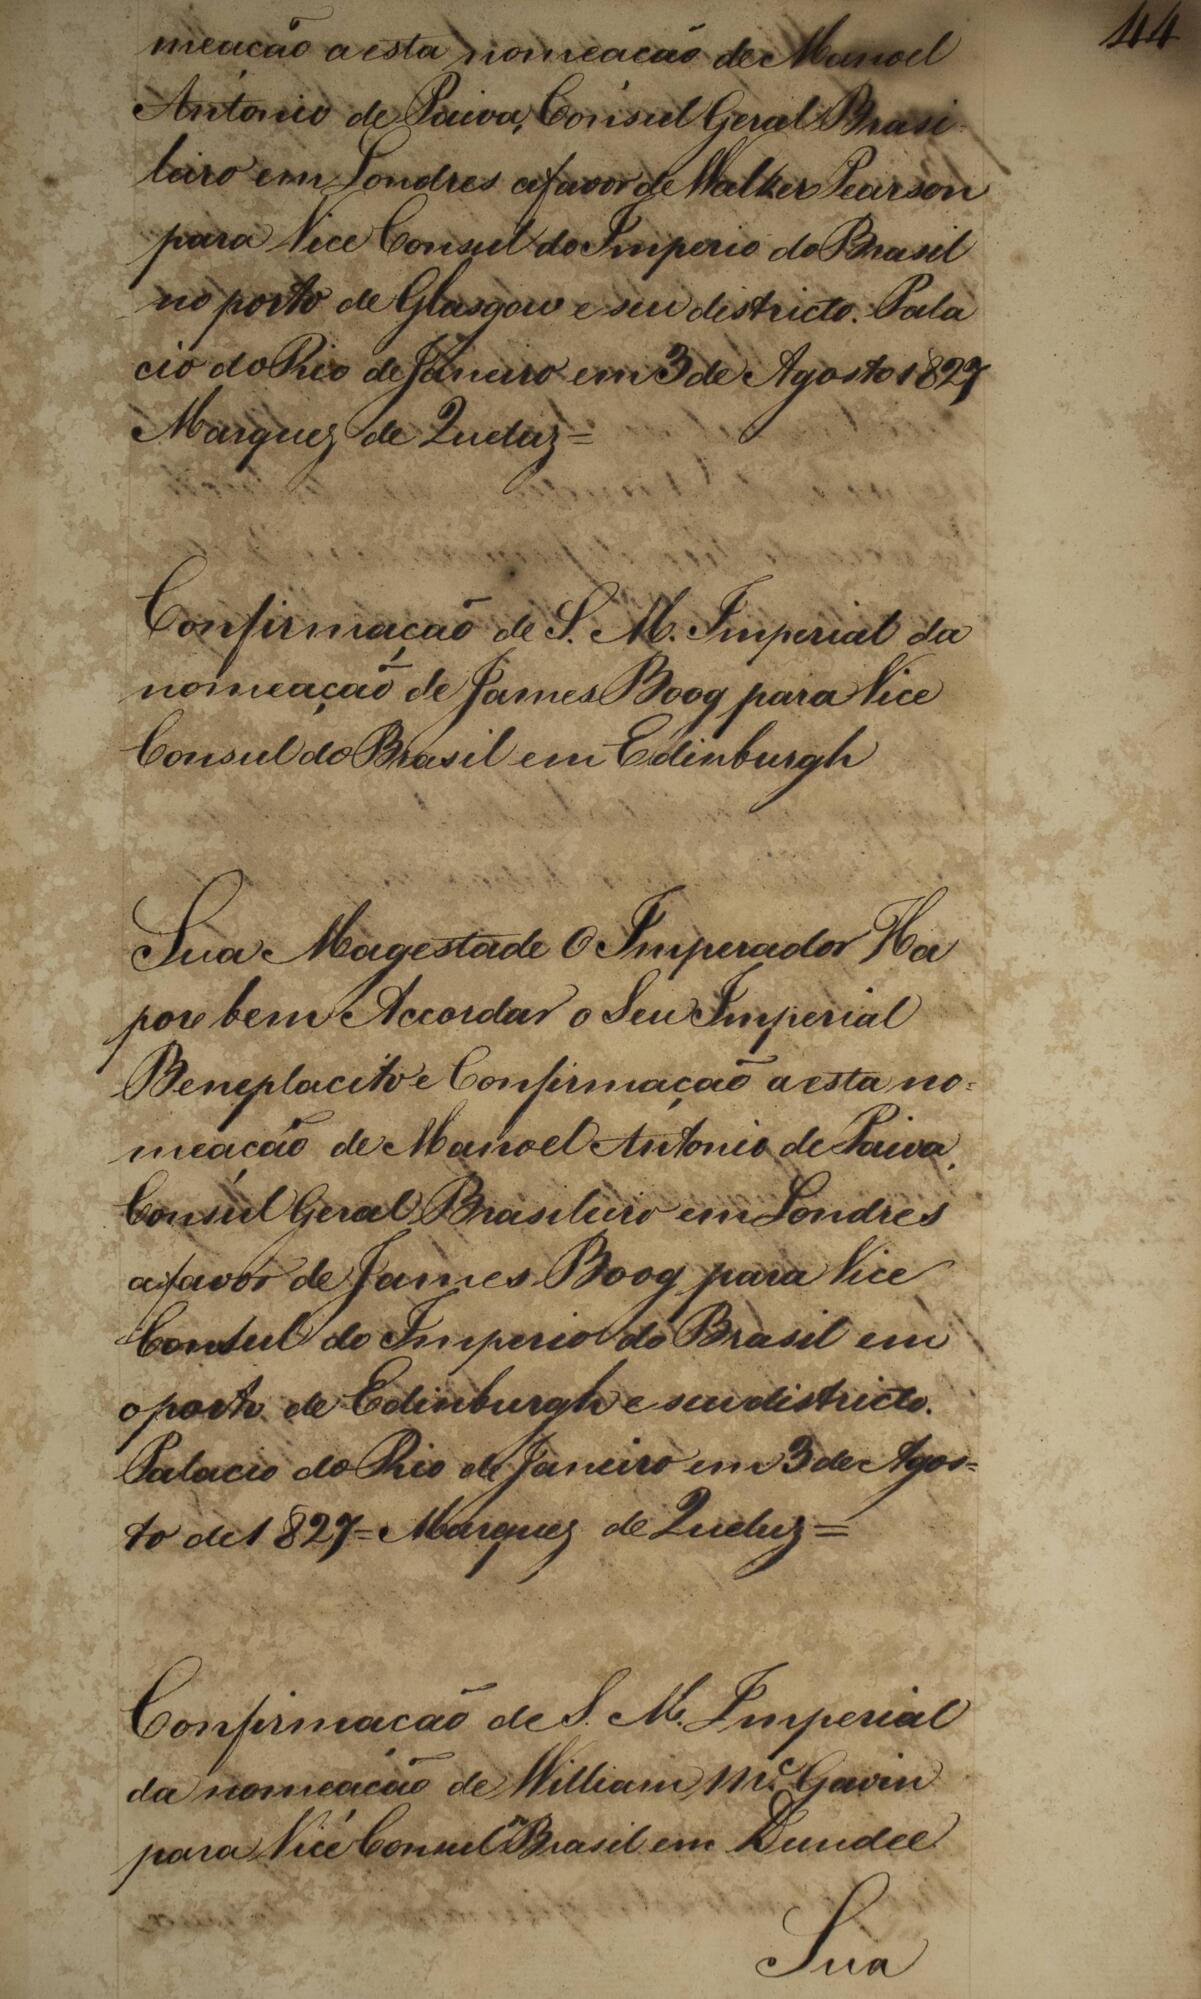 44
meação a esta nomeação de Manoel
Antonio de Paiva, Consul Geral Brasi-
leiro em Londres a favor de Walker Pearson
para Vice Consul do Imperio do Brasil
no porto de Glasgow e seu districto. Pala
cio do Rio de Janeiro em 3 de Agosto 1827
Marquez de Queluz=
Confirmação de S. M. Imperial da
nomeação de James Boog para Vice
Consul do Brasil em Edinburgh
Sua Magestade O Imperador Ha
por bem Accordar o Seu Imperial
Beneplacito e Confirmação a esta no=
meação de Manoel Antonio de Paiva,
Consul Geral Brasileiro em Londres
a favor de James Boog para Vice
Consul do Imperio do Brasil em
o porto de Edinburgh e seu districto.
Palacio do Rio de Janeiro em 3 de Agos=
to de 1827= Marquez de Queluz=
Confirmação de S. M. Imperial
da nomeação de William Mc. Gavin
para Vice Consul do Brasil em Dundee
Sua